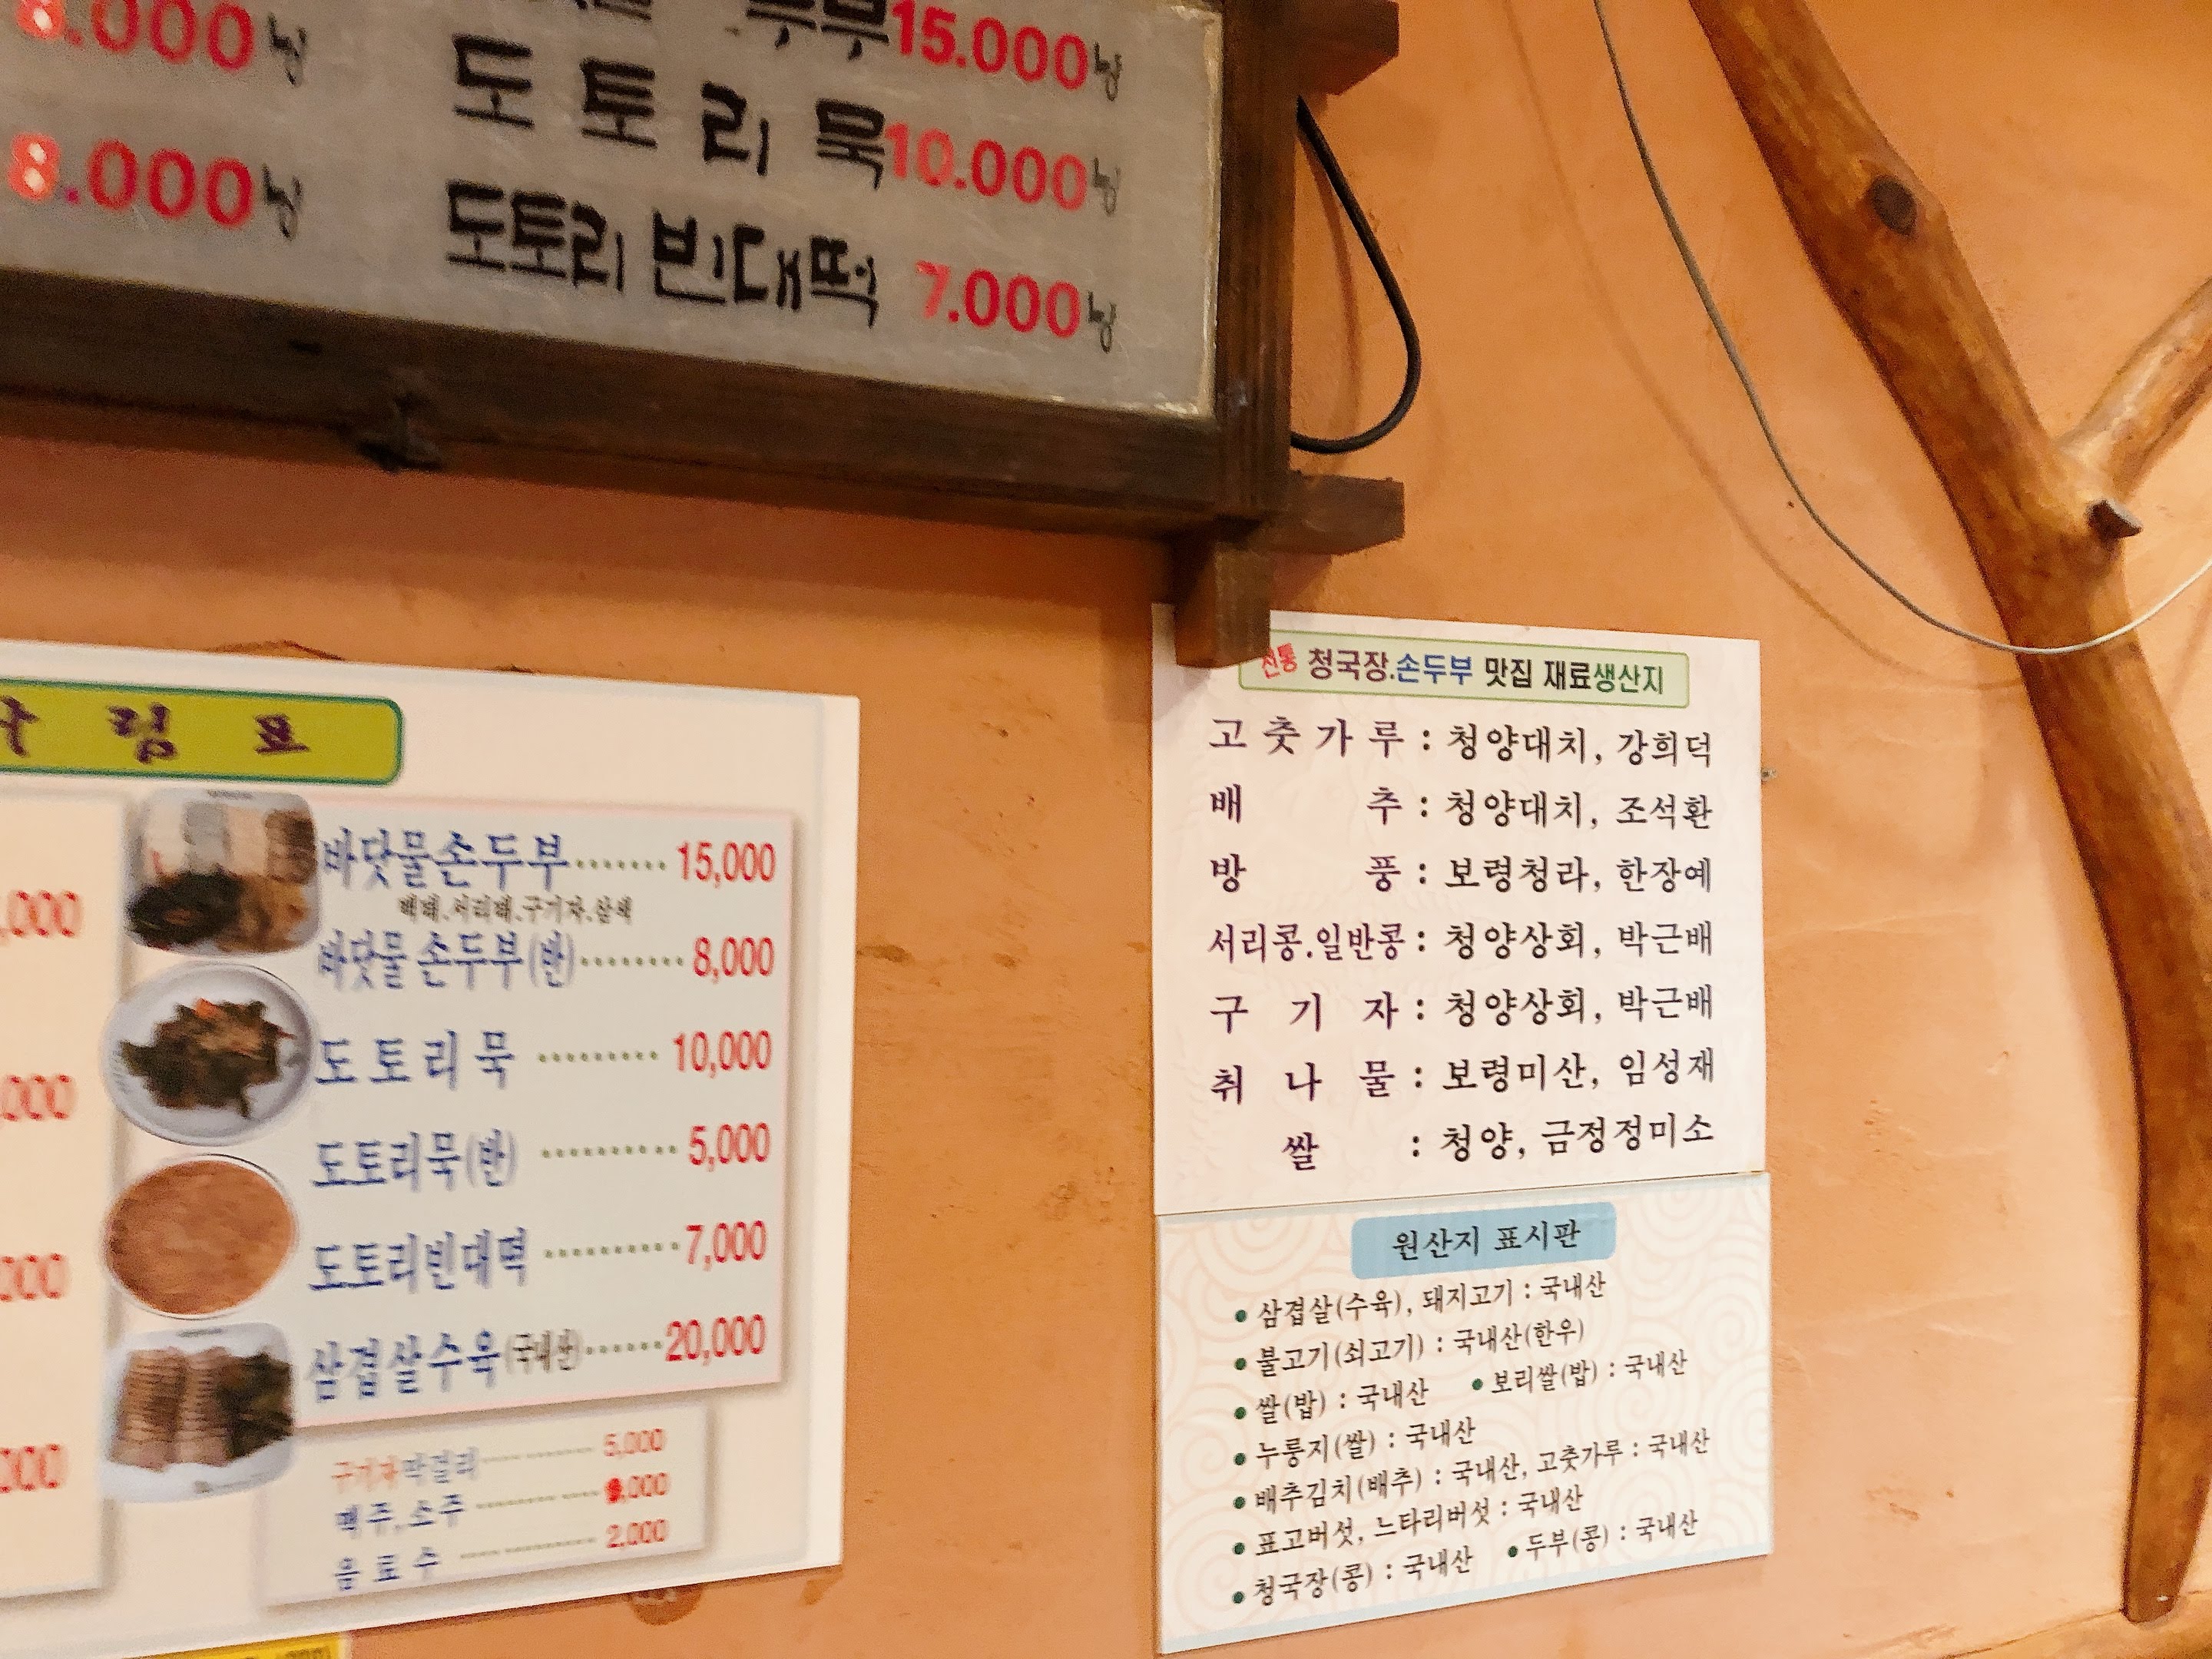 8.000냥
두부 15.000냥
도토리묵 10.000냥
8.000냥
도토리 빈대떡 7.000냥
차림표
바닷물손두부 15,000
백태.서리태.구기자.삼색
바닷물 손두부(반) 8,000
,000
도토리묵 10,000
,000
도토리묵(반) 5,000
도토리빈대떡 7,000
,000
삼겹살수육(국내산) 20,000
,000
구기자막걸리 5,000
맥주, 소주 ,000
음료수 2,000
전통 청국장.손두부 맛집 재료생산지
고춧가루 : 청양대치, 강희덕
배추 : 청양대치, 조석환
방풍 : 보령청라, 한장예
서리콩.일반콩 : 청양상회, 박근배
구기자 : 청양상회, 박근배
취나물 : 보령미산, 임성재
쌀 : 청양, 금정정미소
원산지 표시판
• 삼겹살(수육), 돼지고기 : 국내산
• 불고기(쇠고기) : 국내산(한우)
• 쌀(밥) : 국내산 • 보리쌀(밥) : 국내산
• 누룽지(쌀) : 국내산
• 배추김치(배추) : 국내산, 고춧가루 : 국내산
• 표고버섯, 느타리버섯 : 국내산
• 청국장(콩) : 국내산 • 두부(콩) : 국내산